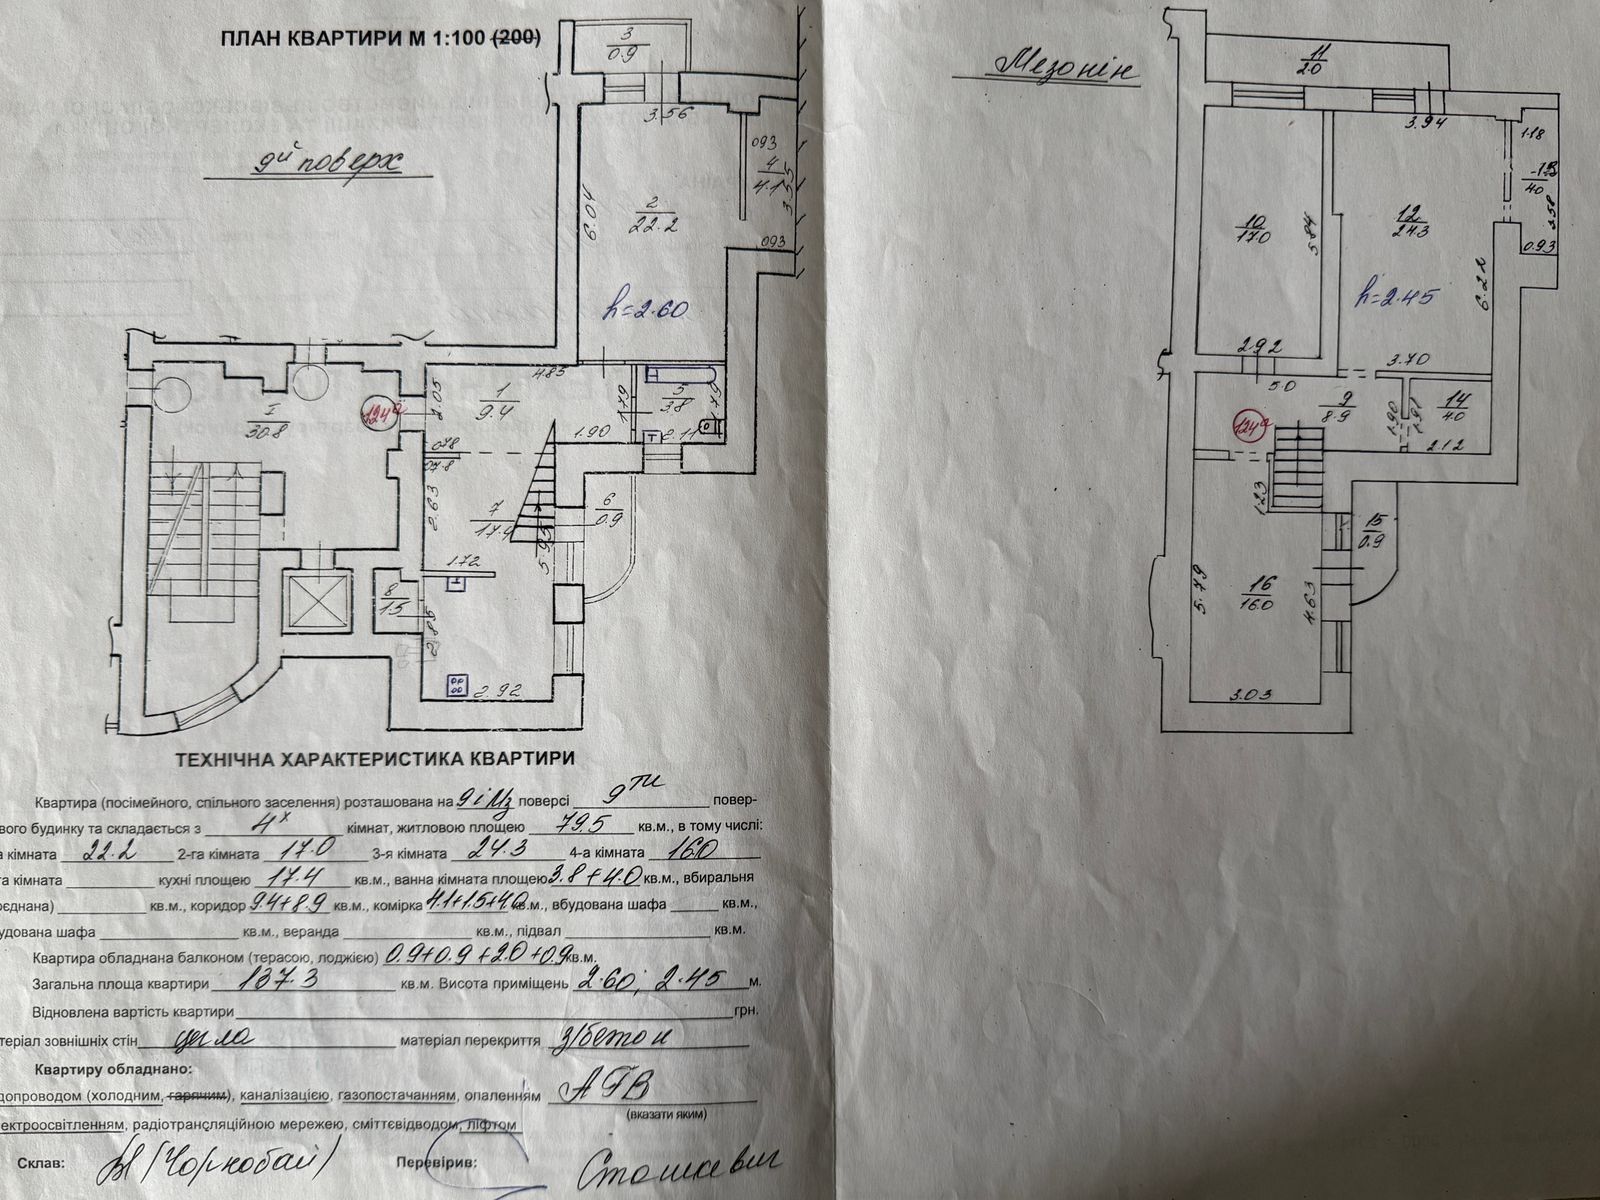 ПЛАН КВАРТИРИ М 1:100 (200)
9й поверх
3
0.9
3.56
093
4
4.1
3.55
093
6.04
2
22.2
h=2.60
I
30.8
124а
2.05
4.85
1
9.4
1.79
5
3.8
1.79
2.11
1.90
078
07.8
2.63
7
17.4
5.95
6
0.9
1.72
8
1.5
2.85
2.92
ТЕХНІЧНА ХАРАКТЕРИСТИКА КВАРТИРИ
Квартира (посімейного, спільного заселення) розташована на 9 і Мз поверсі 9ти повер-
вого будинку та складається з 4х кімнат, житловою площею 79.5 кв.м., в тому числі:
а кімната 22.2 2-га кімната 17.0 3-я кімната 24.3 4-а кімната 16.0
та кімната кухні площею 17.4 кв.м., ванна кімната площею 3.8+4.0 кв.м., вбиральня
оєднана) кв.м., коридор 9.4+8.9 кв.м., комірка 4.1+1.5+4.0 кв.м., вбудована шафа кв.м.,
удована шафа кв.м., веранда кв.м., підвал кв.м.
Квартира обладнана балконом (терасою, лоджією) 0.9+0.9+2.0+0.9 кв.м.
Загальна площа квартири 137.3 кв.м. Висота приміщень 2.60; 2.45 м.
Відновлена вартість квартири грн.
теріал зовнішніх стін цегла матеріал перекриття з/бетон
Квартиру обладнано:
допроводом (холодним, гарячим), каналізацією, газопостачанням, опаленням АГВ
(вказати яким)
ектроосвітленням, радіотрансляційною мережею, сміттєвідводом, ліфтом
Склав: (Чорнобай) Перевірив: Сташкевич
Мезонін
11
2.0
3.94
1.18
13
4.0
3.58
0.93
10
17.0
5.84
12
24.3
6.22
h=2.45
2.92
3.70
5.0
9
8.9
1.90
1.91
14
4.0
2.12
124а
1.23
15
0.9
5.79
16
16.0
4.63
3.03